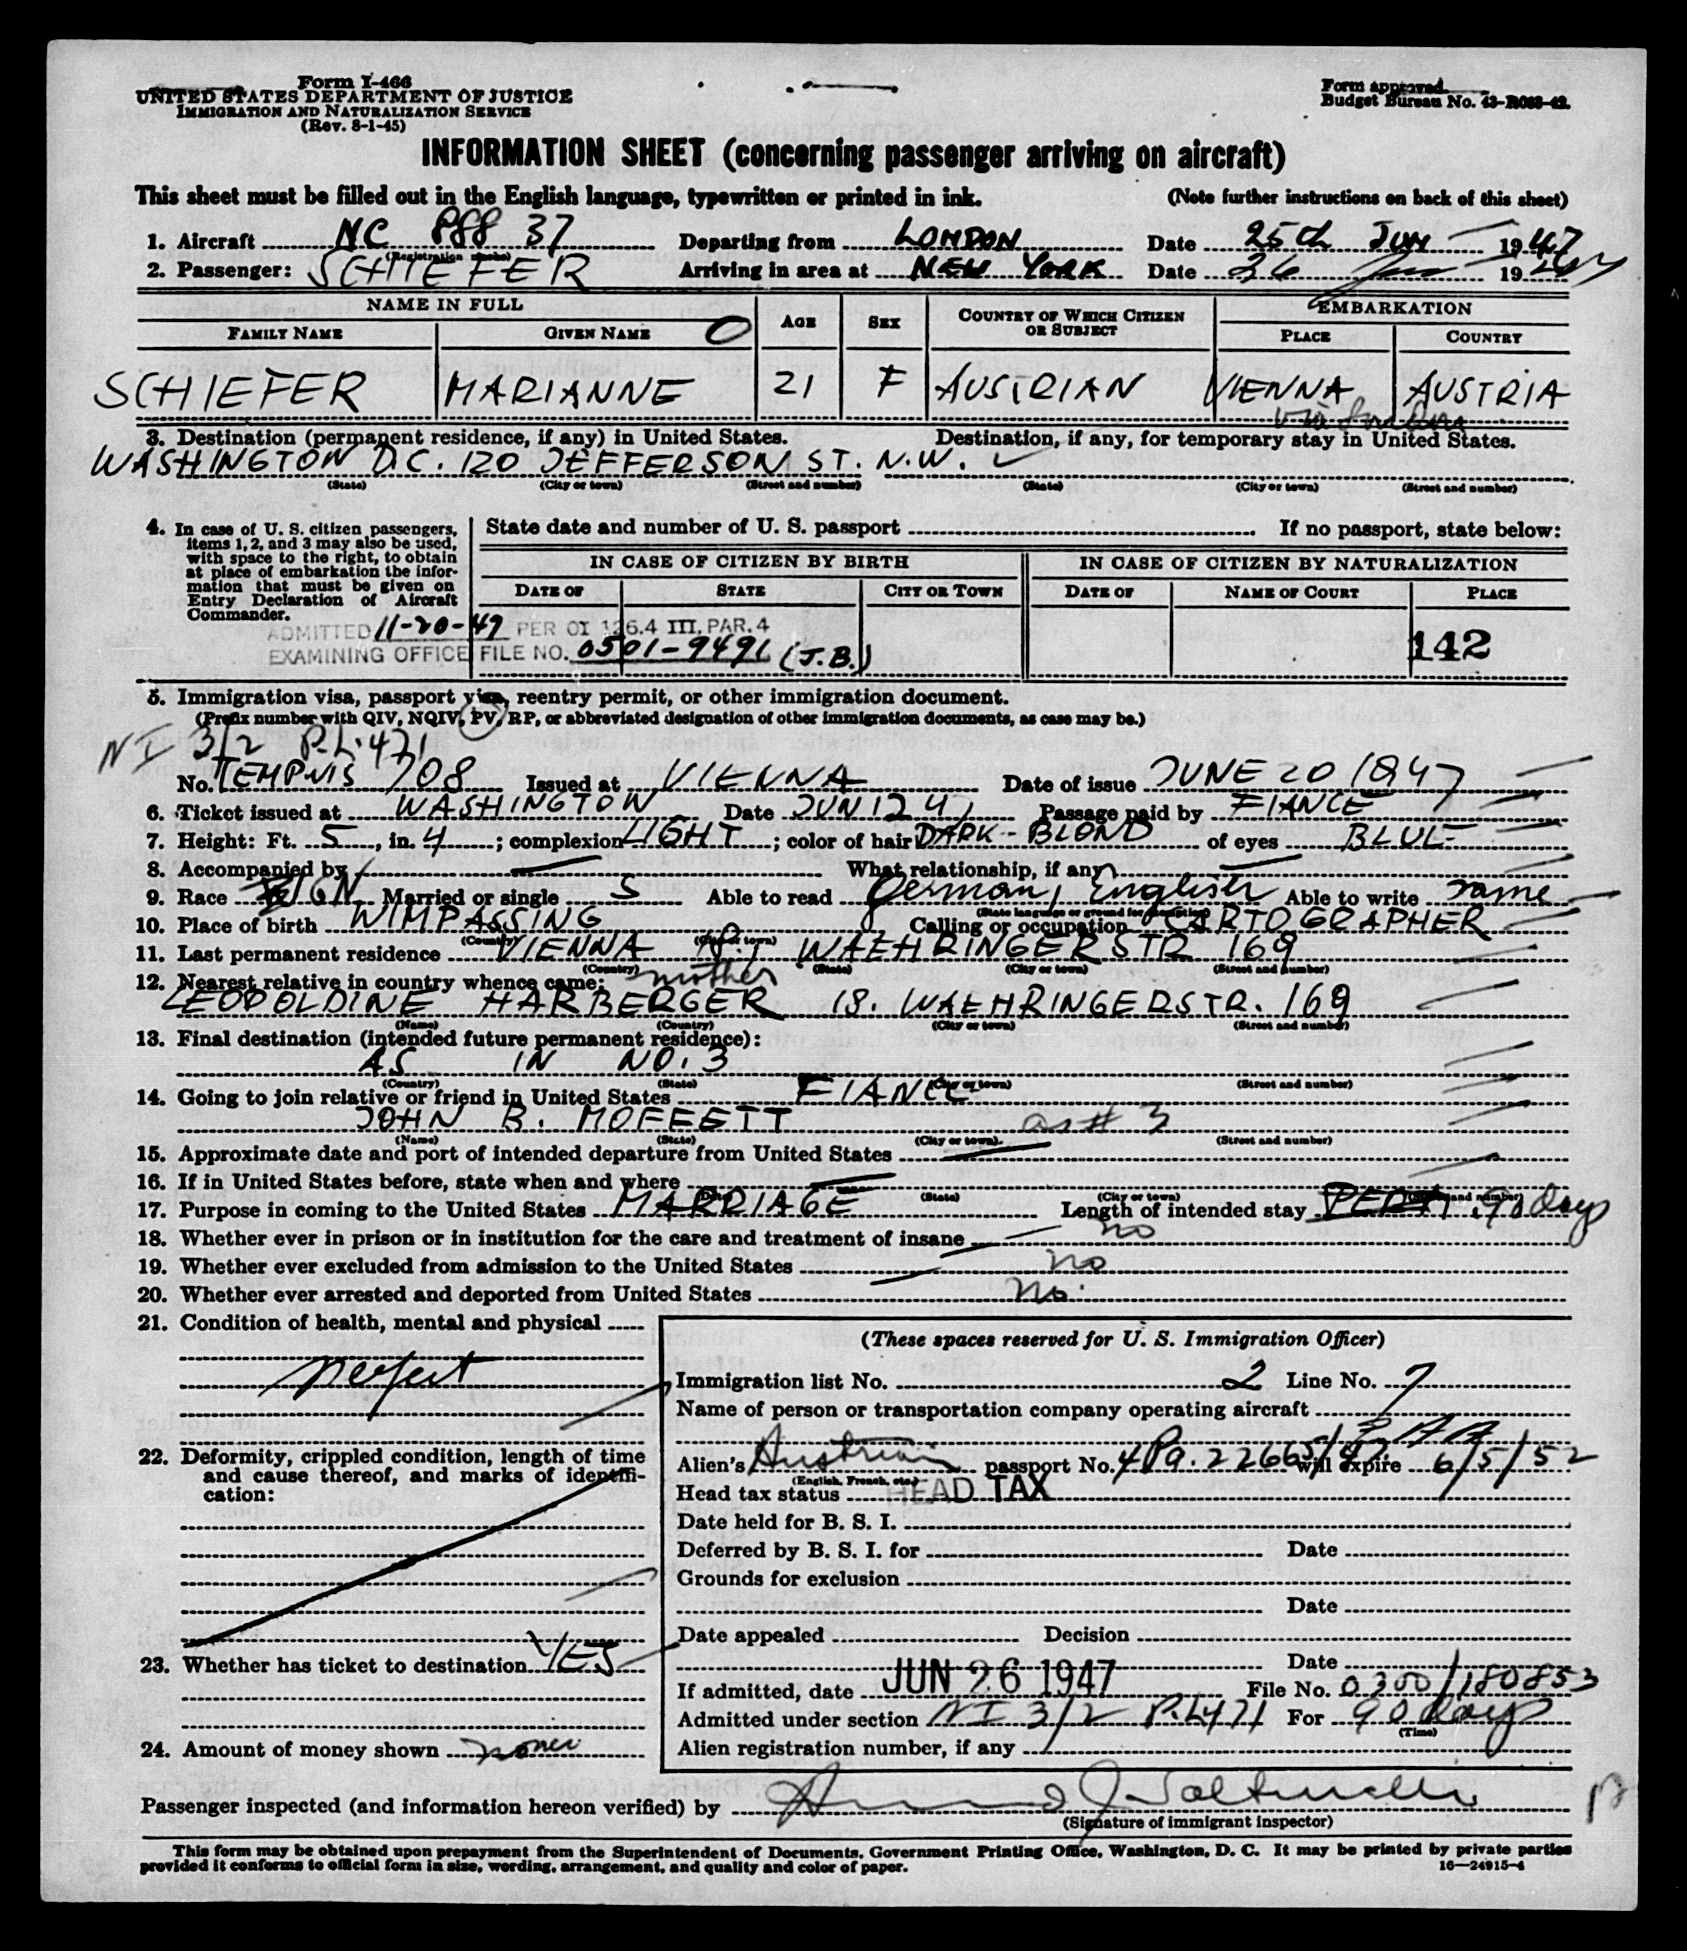 Form I-466
UNITED STATES DEPARTMENT OF JUSTICE
IMMIGRATION AND NATURALIZATION SERVICE
(Rev. 8-1-45)
Form approved.
Budget Bureau No. 43-R083-42.
INFORMATION SHEET (concerning passenger arriving on aircraft)
This sheet must be filled out in the English language, typewritten or printed in ink. (Note further instructions on back of this sheet)
1. Aircraft NC 888 37 Departing from LONDON Date 25th JUN 1947
(Registration marks)
2. Passenger: SCHIEFER Arriving in area at NEW YORK Date 26 Jun 1947
NAME IN FULL AGE SEX COUNTRY OF WHICH CITIZEN OR SUBJECT EMBARKATION
FAMILY NAME GIVEN NAME PLACE COUNTRY
SCHIEFER MARIANNE 21 F AUSTRIAN VIENNA AUSTRIA
via London
3. Destination (permanent residence, if any) in United States. Destination, if any, for temporary stay in United States.
WASHINGTON D.C. 120 JEFFERSON ST. N.W.
(State) (City or town) (Street and number) (State) (City or town) (Street and number)
4. In case of U. S. citizen passengers, items 1, 2, and 3 may also be used, with space to the right, to obtain at place of embarkation the information that must be given on Entry Declaration of Aircraft Commander.
State date and number of U. S. passport If no passport, state below:
IN CASE OF CITIZEN BY BIRTH IN CASE OF CITIZEN BY NATURALIZATION
DATE OF STATE CITY OR TOWN DATE OF NAME OF COURT PLACE
ADMITTED 11-20-47 PER OI 126.4 III, PAR. 4
142
EXAMINING OFFICE FILE NO. 0501-9491 (J.B.)
5. Immigration visa, passport visa, reentry permit, or other immigration document.
(Prefix number with QIV, NQIV, PV, RP, or abbreviated designation of other immigration documents, as case may be.)
NI 3/2 P.L. 471
No. TEMP VIS 708 Issued at VIENNA Date of issue JUNE 20 1947
6. Ticket issued at WASHINGTON Date JUN 12 47 Passage paid by FIANCE
7. Height: Ft. 5, in. 4; complexion LIGHT; color of hair DARK-BLOND of eyes BLUE
8. Accompanied by What relationship, if any
9. Race Married or single S Able to read German, English Able to write same
(State language or ground for exemption)
10. Place of birth WIMPASSING Calling or occupation CARTOGRAPHER
(Country) (City or town)
11. Last permanent residence VIENNA WAEHRINGERSTR 169
(Country) (State) (City or town) (Street and number)
12. Nearest relative in country whence came: mother
LEOPOLDINE HARBERGER 18. WAEHRINGERSTR. 169
(Name) (Country) (City or town) (Street and number)
13. Final destination (intended future permanent residence):
AS IN NO. 3
(Country) (State) (City or town) (Street and number)
14. Going to join relative or friend in United States FIANCE
JOHN B. MOFFETT as # 3
(Name) (State) (City or town) (Street and number)
15. Approximate date and port of intended departure from United States
16. If in United States before, state when and where
(Date) (State) (City or town) (Street and number)
17. Purpose in coming to the United States MARRIAGE Length of intended stay 90 days
18. Whether ever in prison or in institution for the care and treatment of insane no
19. Whether ever excluded from admission to the United States no
20. Whether ever arrested and deported from United States no.
21. Condition of health, mental and physical
perfect
22. Deformity, crippled condition, length of time and cause thereof, and marks of identification:
23. Whether has ticket to destination YES
24. Amount of money shown none
(These spaces reserved for U. S. Immigration Officer)
Immigration list No. 2 Line No. 7
Name of person or transportation company operating aircraft
Alien's Austrian passport No. 4 Pa. 22665/47. will expire 6/5/52
(English, French, etc.)
Head tax status HEAD TAX
Date held for B. S. I.
Deferred by B. S. I. for Date
Grounds for exclusion
Date
Date appealed Decision
Date
If admitted, date JUN 26 1947 File No. 0300/180853
Admitted under section NI 3/2 P.L. 471 For 90 days
(Time)
Alien registration number, if any
Passenger inspected (and information hereon verified) by
(Signature of immigrant inspector)
This form may be obtained upon prepayment from the Superintendent of Documents, Government Printing Office, Washington, D. C. It may be printed by private parties
provided it conforms to official form in size, wording, arrangement, and quality and color of paper. 16—24915-4